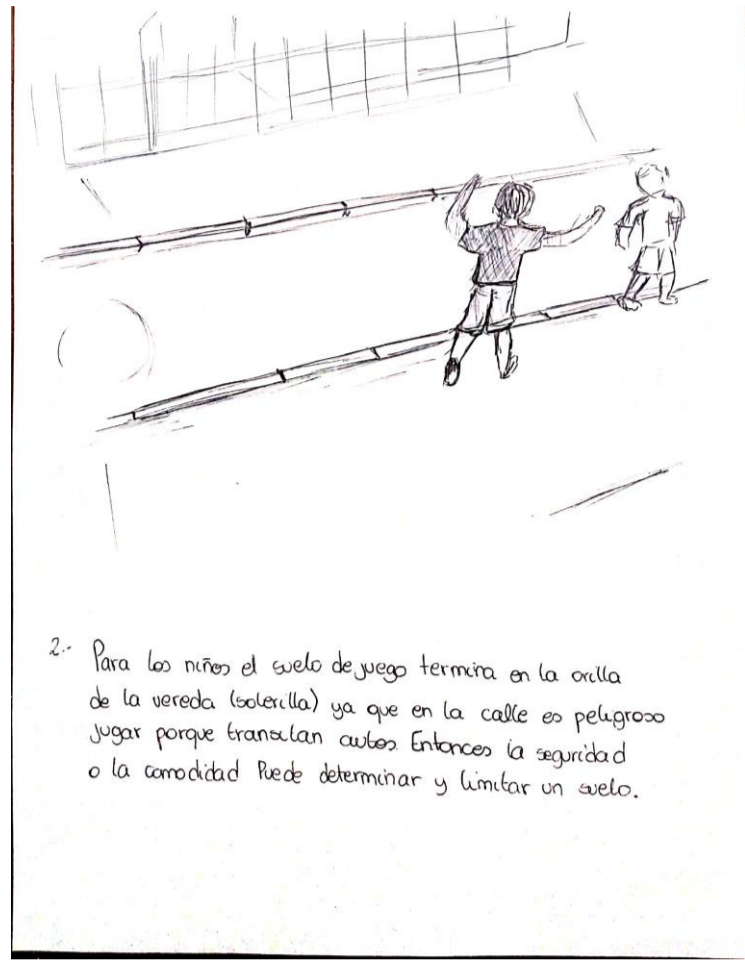 2.- Para los niños el suelo de juego termina en la orilla
de la vereda (solerilla) ya que en la calle es peligroso
jugar porque transitan autos. Entonces la seguridad
o la comodidad Puede determinar y limitar un suelo.